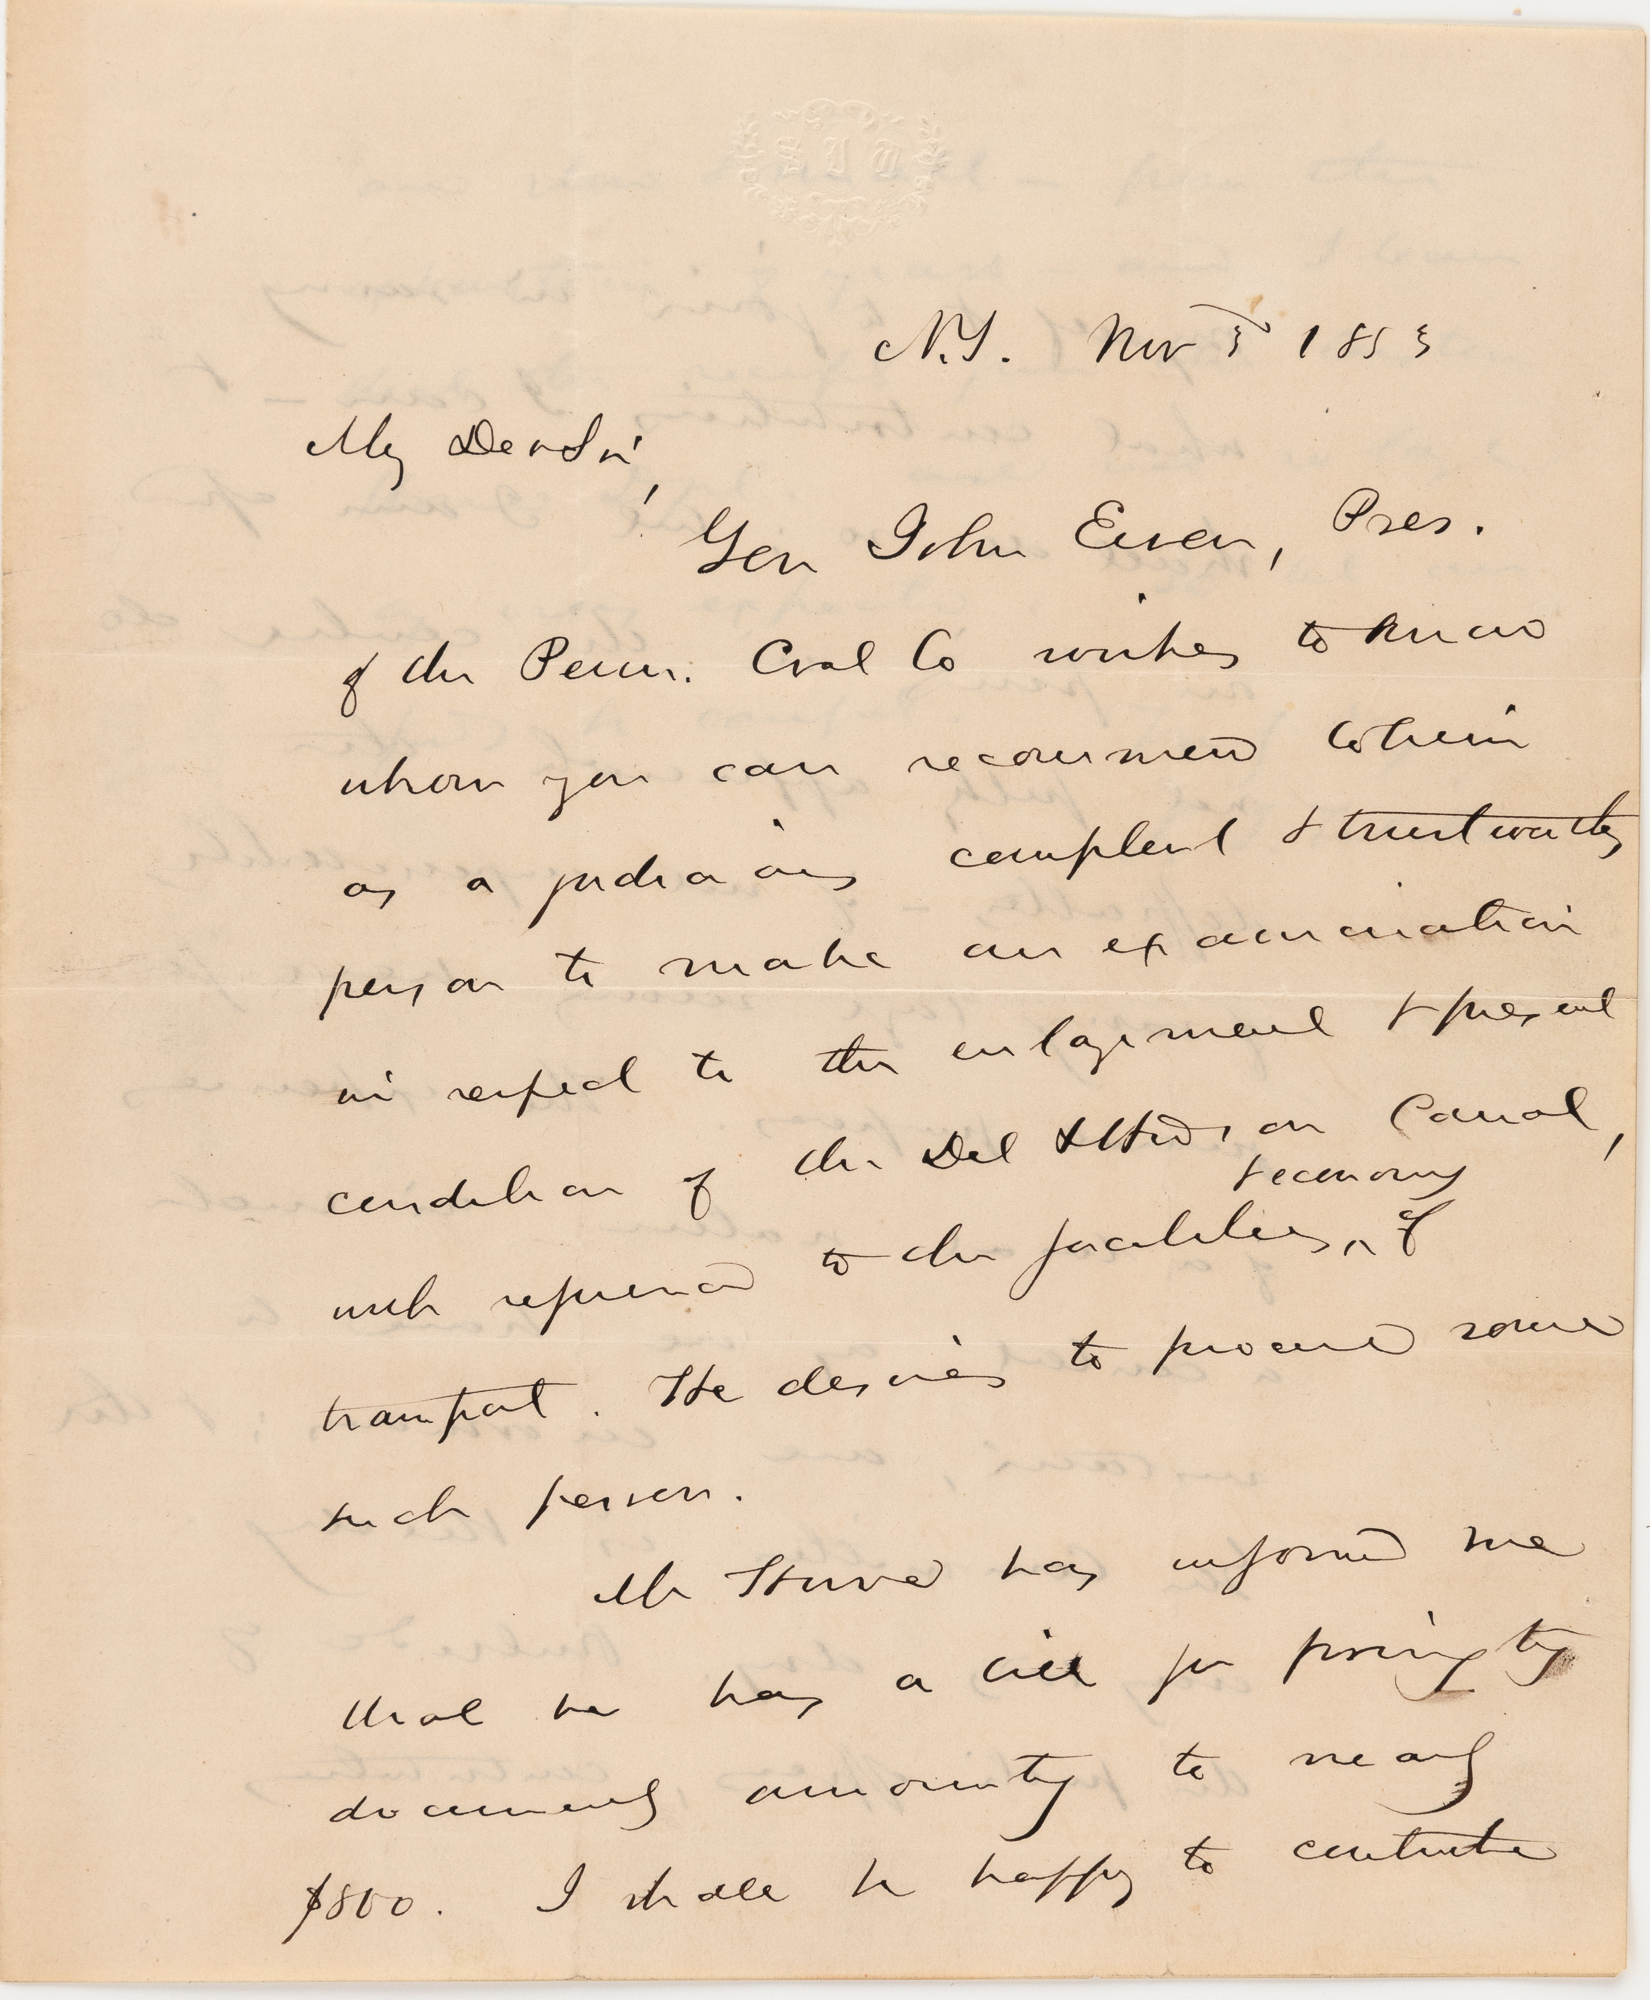 N.Y. Nov 3 1853
My Dear Sir,
Gen John Ewen, Pres.
of the Penn. Coal Co wishes to know
whom you can recommend to him
as a judicious competent & trustworthy
person to make an examination
in respect to the enlargement & present
condition of the Del & Hudson Canal,
& economy
with reference to the facilities, ^ of
transport. He desires to procure some
such person.
Mr has informed me
that he has a bill for printing
documents amounting to nearly
$800. I shall be happy to contribute